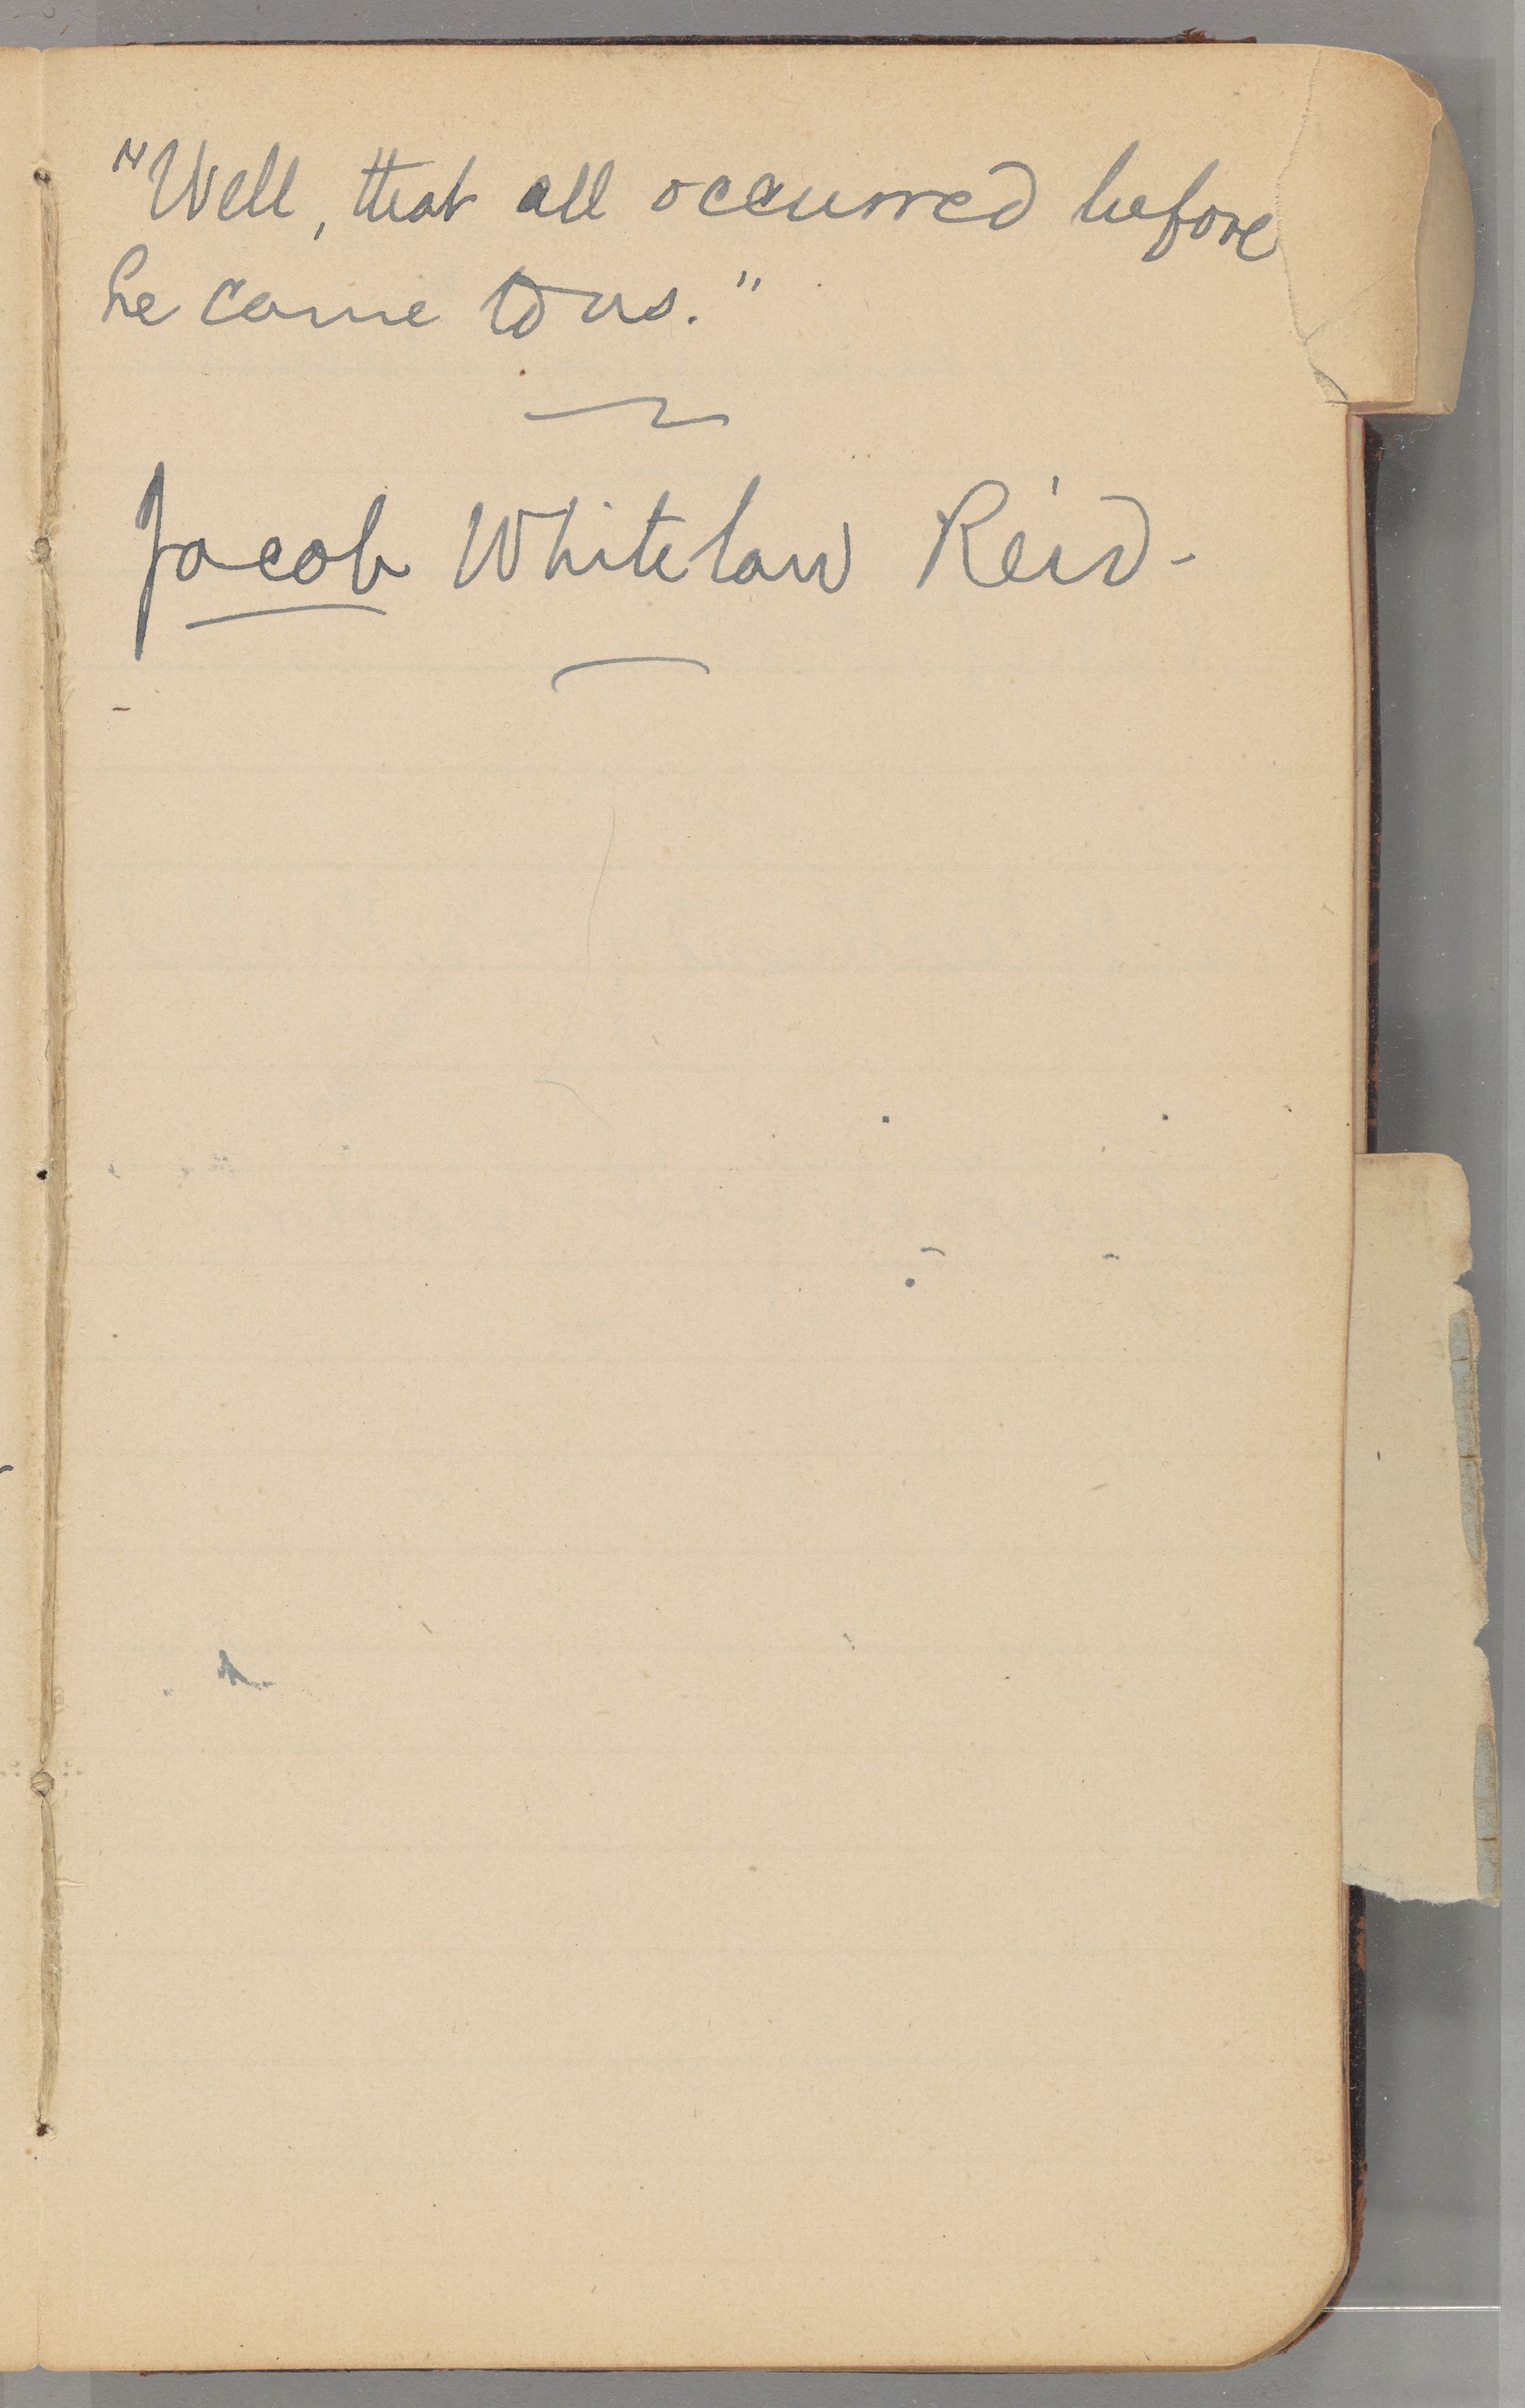 "Well, that all occurred before
he came to us."
Jacob Whitelaw Reid.